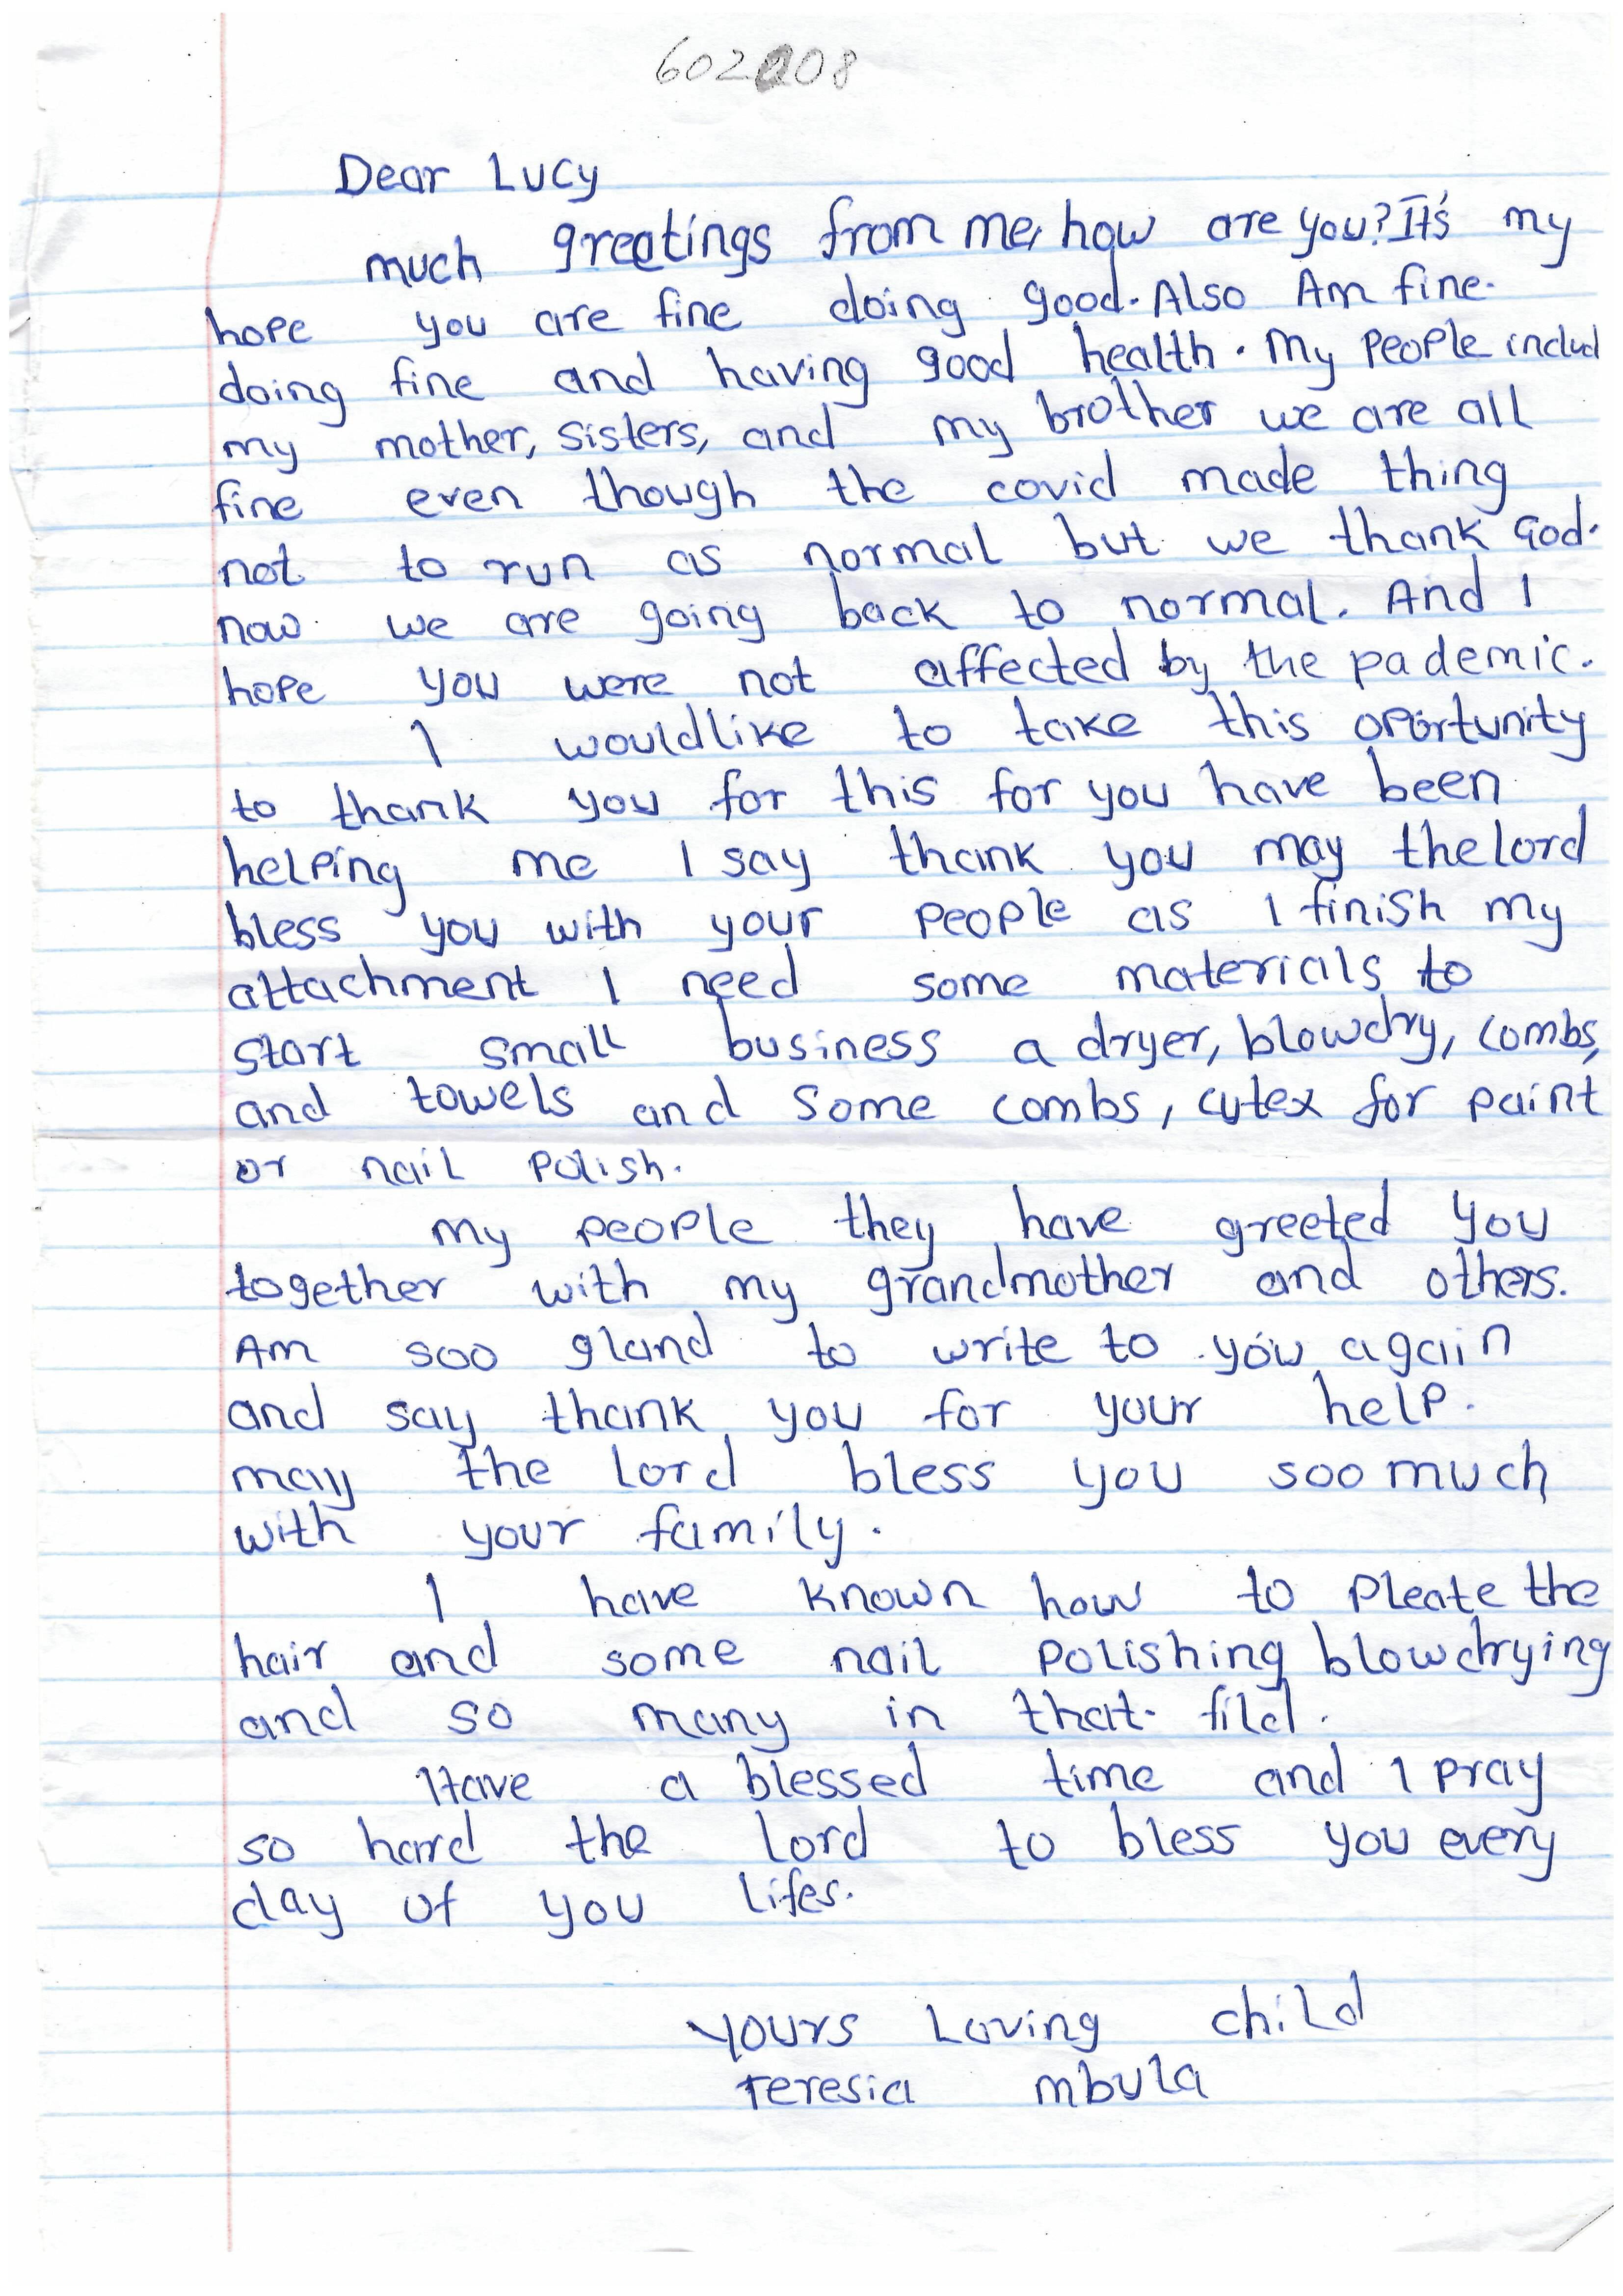 602008
Dear Lucy
much greetings from me, how are you? It's my
hope you are fine doing good. Also Am fine.
doing fine and having good health. My people includ
my mother, sisters, and my brother we are all
fine even though the covid made thing
not to run as normal but we thank God.
now we are going back to normal. And I
hope you were not affected by the pademic.
I wouldlike to take this oportunity
to thank you for this for you have been
helping me I say thank you may thelord
bless you with your people as I finish my
attachment I need some materials to
start small business a dryer, blowdry, combs,
and towels and some combs, cutex for paint
or nail polish.
My people they have greeted you
together with my grandmother and others.
Am soo gland to write to you again
and say thank you for your help.
may the lord bless you soo much
with your family.
I have known how to pleate the
hair and some nail polishing blowdrying
and so many in that fild.
Have a blessed time and I pray
so hard the lord to bless you every
day of you lifes.
yours Loving child
Teresia mbula